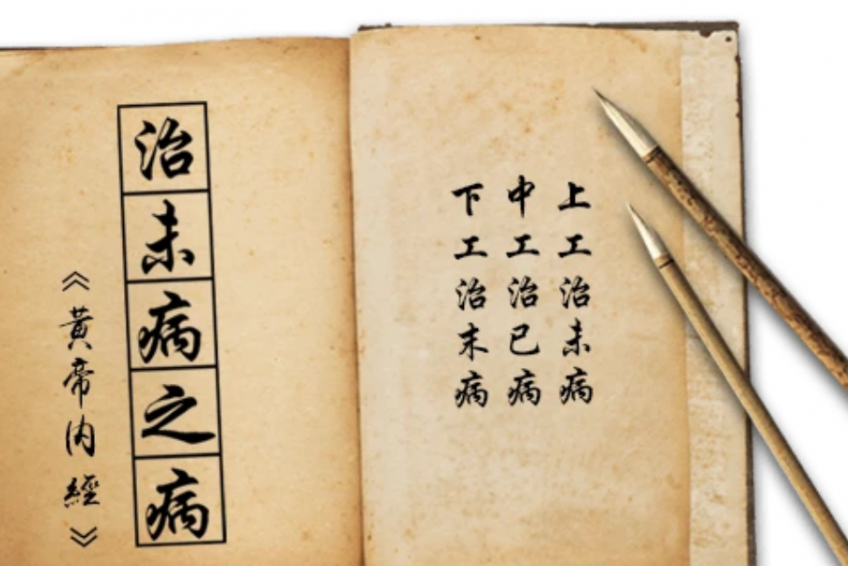 治未病之病
《黃帝内經》
上工治未病
中工治已病
下工治末病